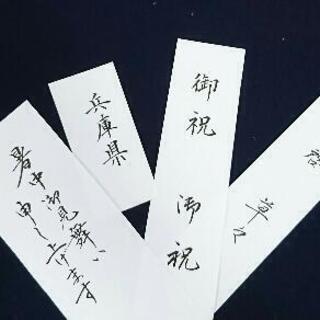 暑中御見舞い
申し上げます
兵庫県
御祝
御祝
草々